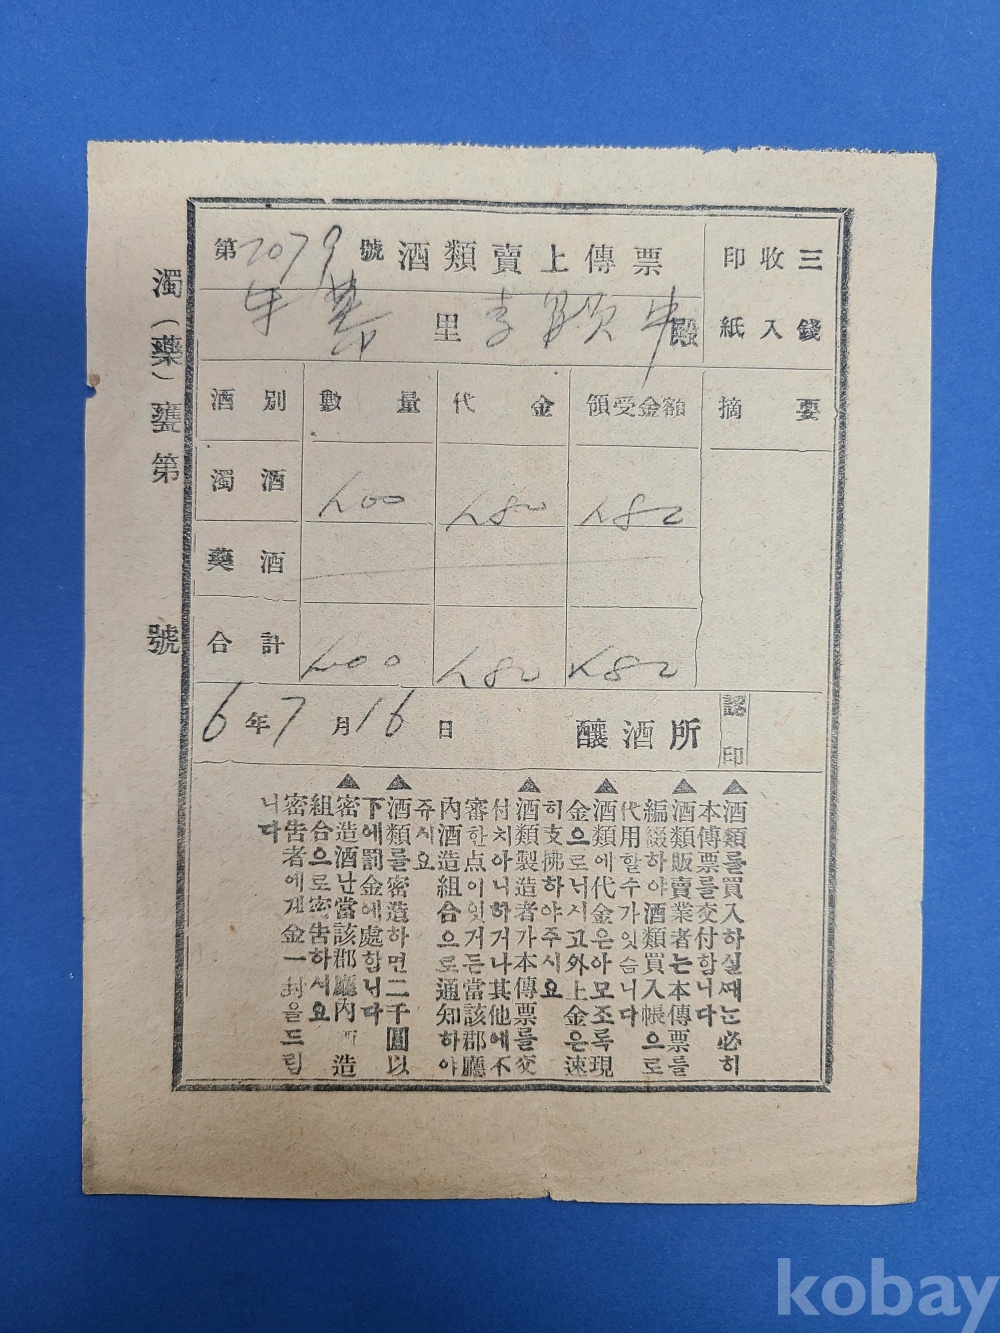 三錢
收入
印紙
第2079號 酒類賣上傳票
里 李 殿
酒別 數量 代金 領受金額 摘要
濁酒
藥酒
合計
6年7月16日 釀酒所 認印
濁(藥)甕第 號
▲酒類를買入하실때는必히
本傳票를交付합니다
▲酒類販賣業者는本傳票를
編綴하야酒類買入帳으로
代用할수가잇슴니다
▲酒類에代金은아모조록現
金으로니시고外上金은速
히支拂하야주시요
▲酒類製造者가本傳票를交
付치아니하거나其他에不
審한点이잇거든當該郡廳
內酒造組合으로通知하야
쥬시요
▲酒類를密造하면二千圓以
下에罰金에處합니다
▲密造酒난當該郡廳內酒造
組合으로密告하시요
密告者에게金一封을드립
니다
kobay